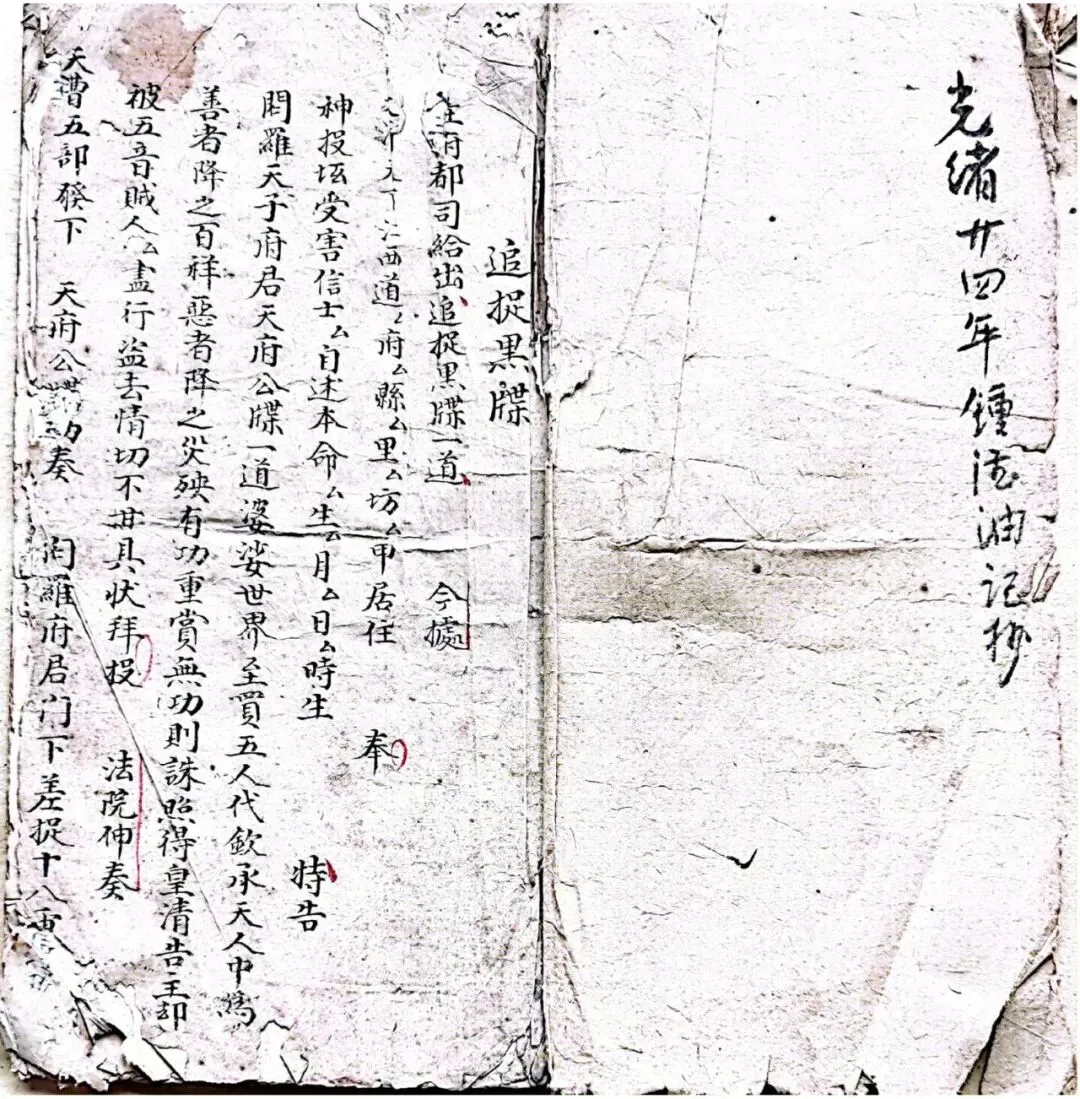 光緒廿四年鍾法油記抄
追捉黑牒
主府都司給出追捉黑牒一道 今據
江西道府厶縣厶里厶坊厶甲居住 奉
神投坛受害信士厶自述本命厶生厶月厶日厶時生 特告
閻羅天子府君天府公牒一道婆娑世界至買五人代欽承天人中為
善者降之百祥惡者降之災殃有功重賞無功則誅照得皇清告主却
被五音賊人厶盡行盜去情切不甘具状拜投 法院伸奏
天曹五部發下 天府公 劾奏 閻羅府君門下差捉十八